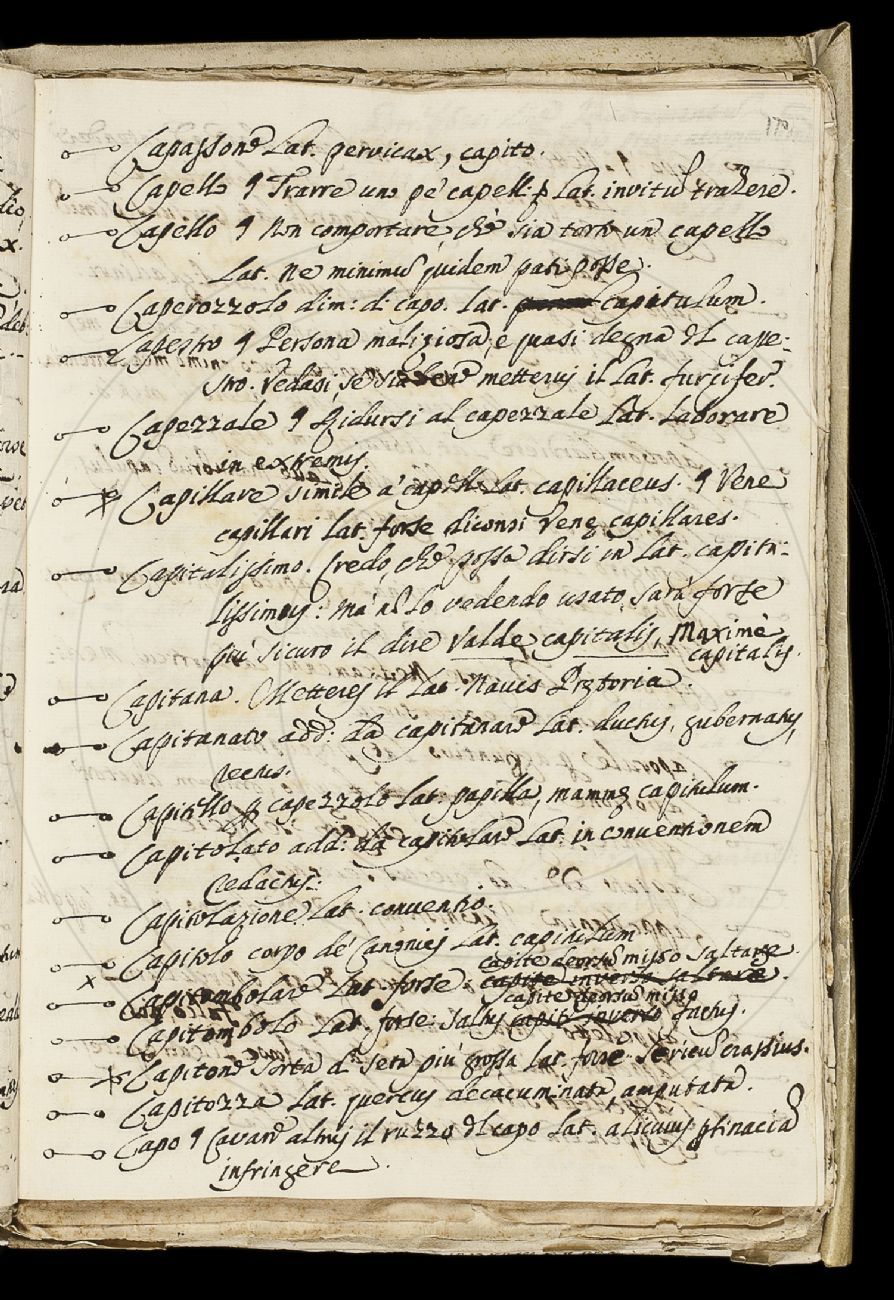 170
Capassone Lat. pervicax, capito.
Capello ¶ Trarre uno pe' capelli Lat. invitū trahere.
Capello ¶ Non comportare, che sia torto un capello
Lat. ne minimū quidem pati posse.
Caperozzolo dim: di capo. Lat. capitulum.
Capestro ¶ Persona maliziosa, e quasi degna del cape-
stro. Vedasi, se sia bene mettervi il Lat. furcifer.
Capezzale ¶ Ridursi al capezzale Lat. Laborare
in extremis.
Capillare simile a' capelli Lat. capillaceus. ¶ Vene
capillari Lat. forse diconsi Venę capillares.
Capitalissimo. Credo, che possa dirsi in Lat. capita-
lissimus: ma nō lo vedendo usato, sarà forse
più sicuro il dire Valde capitalis, Maximè
capitalis.
Capitana. Mettere il Lat. Navis Prętoria.
Capitanato add: da capitanare Lat. ductus, gubernatus,
rectus.
Capitello p capezzolo Lat. papilla, mammę capitulum.
Capitolato add: da capitolare Lat. in conventionem
redactus.
Capitolazione Lat. conventio.
Capitolo corpo de' Canonici Lat. capitulum
capite deorsū misso saltare.
Capitombolare Lat. forse: capite inverso saltare.
capite deorsū misso
Capitombolo Lat. forse: saltus capite inverso factus.
Capitone sorta di seta più grossa Lat. forse sericū crassius.
Capitozza Lat. quercus decacuminata, amputata.
Capo ¶ Cavare altrui il ruzzo del capo Lat. alicuius ptinaciā
infringere.